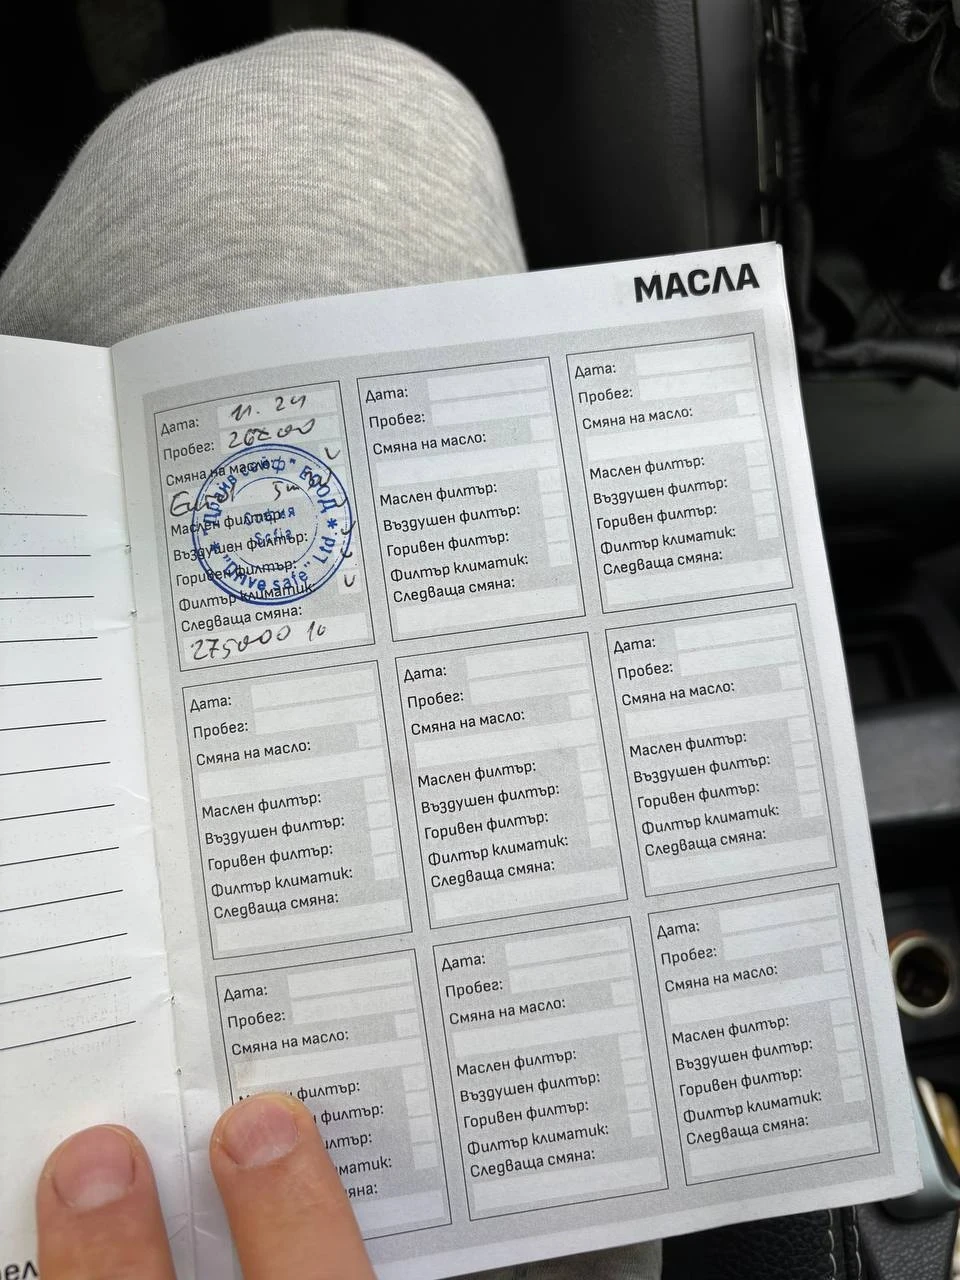 МАСЛА
Дата: 11. 24
Пробег:
Смяна на масло:
Маслен филтър:
Въздушен филтър:
Горивен филтър:
Филтър климатик:
Следваща смяна:
275000
"Драйв сейф" ЕООД * "Drive safe" Ltd *
София
Sofia
Дата:
Пробег:
Смяна на масло:
Маслен филтър:
Въздушен филтър:
Горивен филтър:
Филтър климатик:
Следваща смяна:
Дата:
Пробег:
Смяна на масло:
Маслен филтър:
Въздушен филтър:
Горивен филтър:
Филтър климатик:
Следваща смяна:
Дата:
Пробег:
Смяна на масло:
Маслен филтър:
Въздушен филтър:
Горивен филтър:
Филтър климатик:
Следваща смяна:
Дата:
Пробег:
Смяна на масло:
Маслен филтър:
Въздушен филтър:
Горивен филтър:
Филтър климатик:
Следваща смяна:
Дата:
Пробег:
Смяна на масло:
Маслен филтър:
Въздушен филтър:
Горивен филтър:
Филтър климатик:
Следваща смяна:
Дата:
Пробег:
Смяна на масло:
филтър:
филтър:
Дата:
Пробег:
Смяна на масло:
Маслен филтър:
Въздушен филтър:
Горивен филтър:
Филтър климатик:
Следваща смяна:
Дата:
Пробег:
Смяна на масло:
Маслен филтър:
Въздушен филтър:
Горивен филтър:
Филтър климатик:
Следваща смяна: